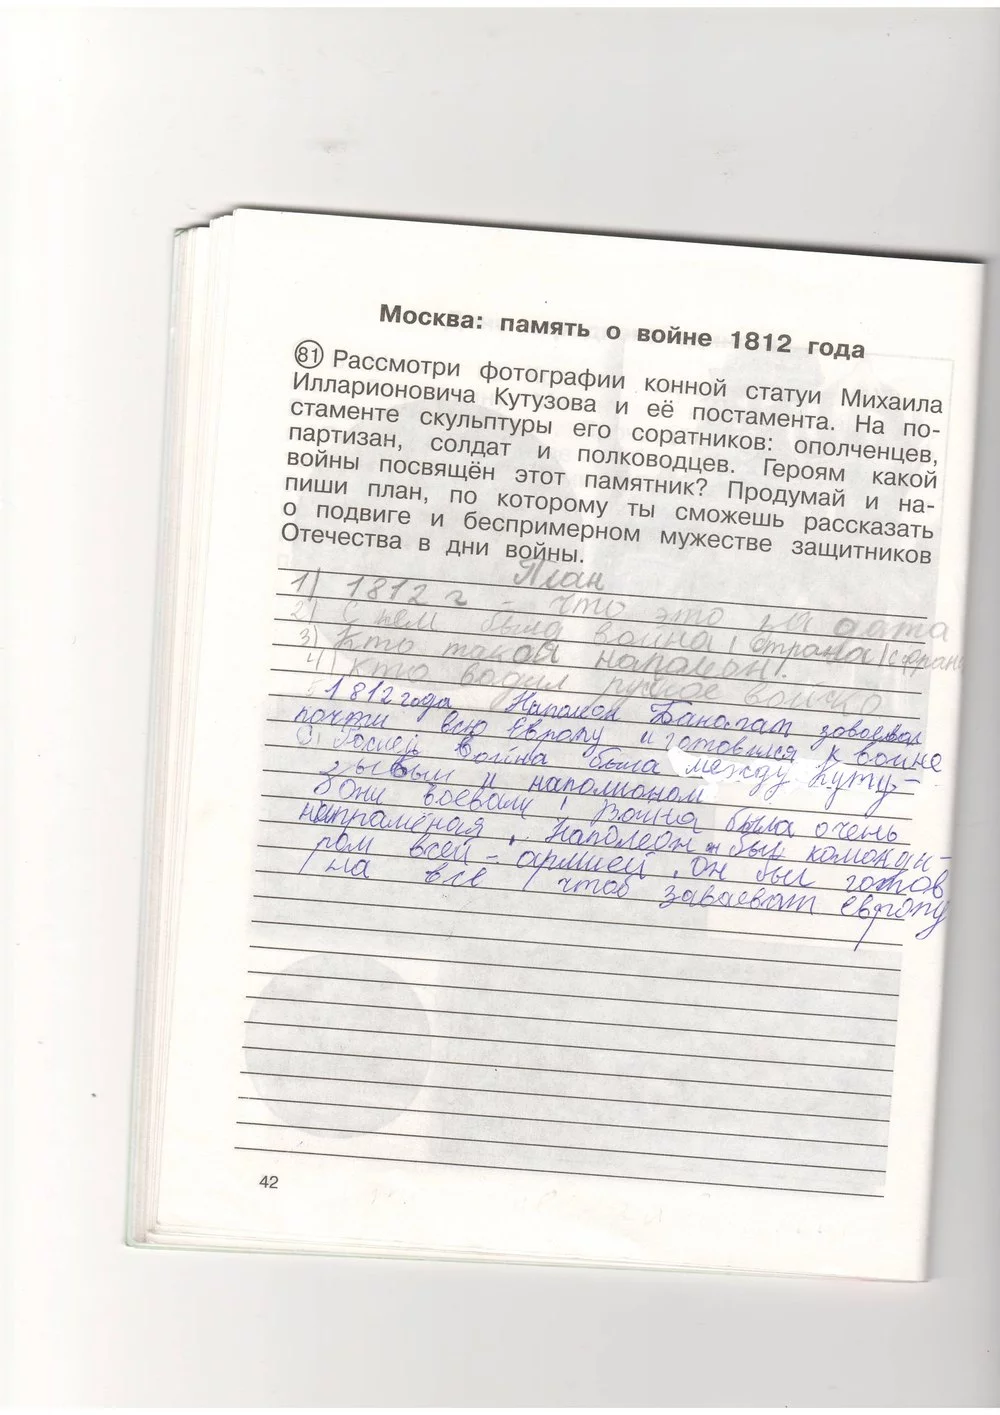 Москва: память о войне 1812 года
81 Рассмотри фотографии конной статуи Михаила
Илларионовича Кутузова и её постамента. На по-
стаменте скульптуры его соратников: ополченцев,
партизан, солдат и полководцев. Героям какой
войны посвящён этот памятник? Продумай и на-
пиши план, по которому ты сможешь рассказать
о подвиге и беспримерном мужестве защитников
Отечества в дни войны.
План
1) 1812 г что это за дата
2) С кем была война (страна)
3) Кто такой наполеон.
4) Кто водил войско
1812 года Банапат завоевал
почти всю Европу и готовился к войне
с Росией Война была между Куту-
зывым и наполионом
Они воевали, Война была очень
Наполеон был
ром всей армией, он был готов
на всё чтоб заваеват европу
42